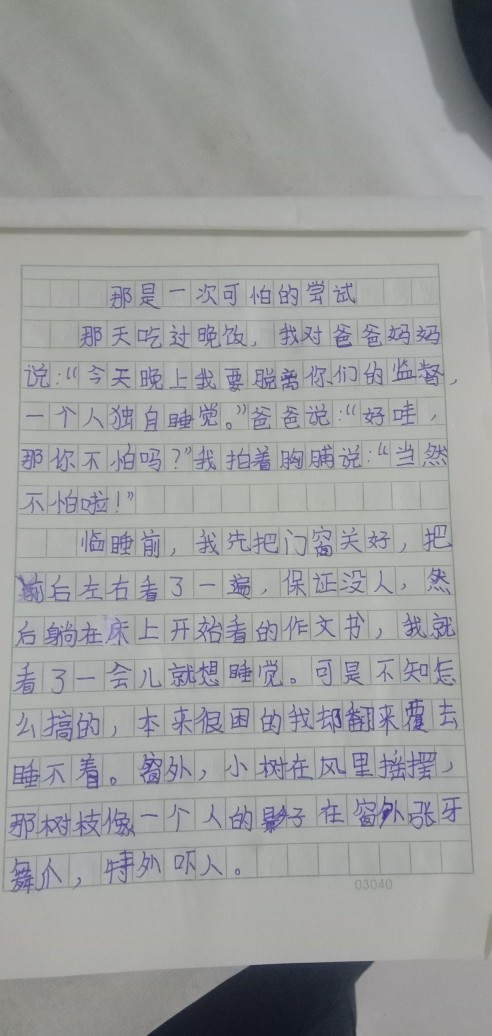 那是一次可怕的尝试
那天吃过晚饭，我对爸爸妈妈
说：“今天晚上我要脱离你们的监督，
一个人独自睡觉。”爸爸说：“好哇，
那你不怕吗？”我拍着胸脯说：“当然
不怕啦！”
临睡前，我先把门窗关好，把
前后左右看了一遍，保证没人，然
后躺在床上开始看的作文书，我就
看了一会儿就想睡觉。可是不知怎
么搞的，本来很困的我却翻来覆去
睡不着。窗外，小树在风里摇摆，
那树枝像一个人的影子在窗外张牙
舞爪，特外吓人。
03040